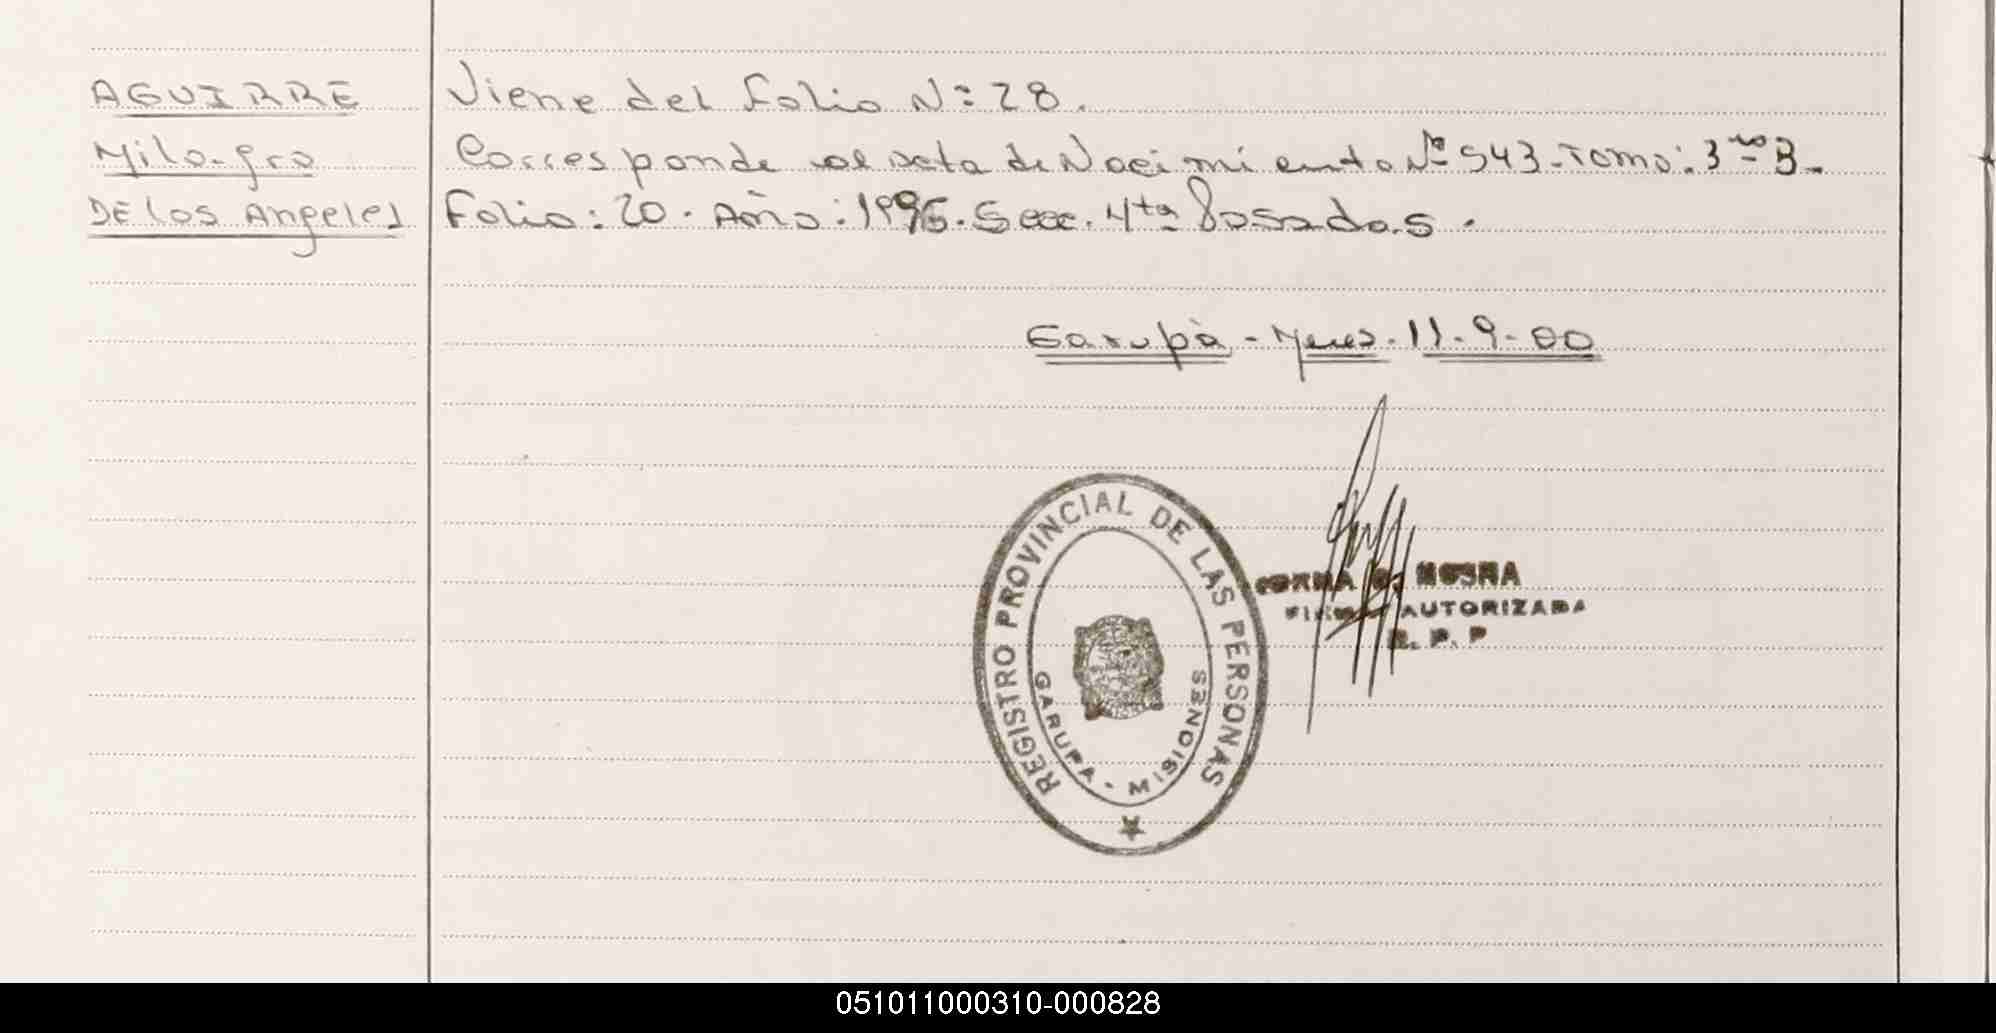 AGUIRRE
Milagro
DE los Angeles
Viene del Folio N: 28.
Corresponde al acta de Nacimiento Nº 543 - Tomo: 3 B -
Folio: 20. Año: 1996. Secc. 4ta Posadas.
Garupà - Mnes. 11-9-00
REGISTRO PROVINCIAL DE LAS PERSONAS
GARUPA - MISIONES
AUTORIZADA
R. P. P
051011000310-000828